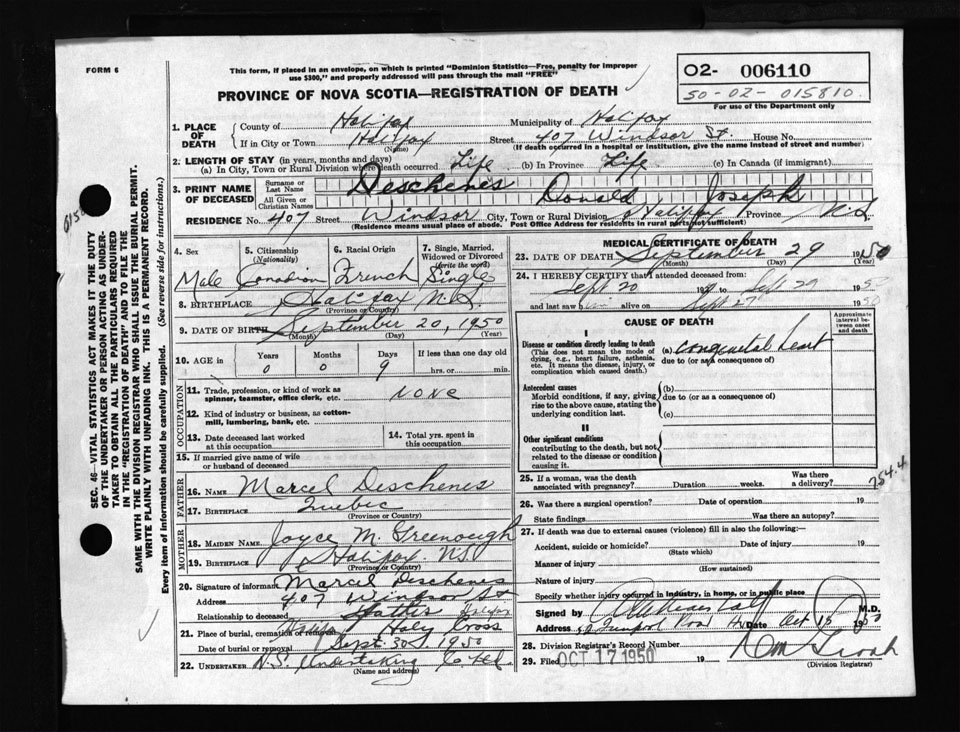 FORM 6
This form, if placed in an envelope, on which is printed "Dominion Statistics—Free, penalty for improper
use $300," and properly addressed will pass through the mail "FREE"
O2- 006110
50-02-015810
For use of the Department only
PROVINCE OF NOVA SCOTIA—REGISTRATION OF DEATH
1. PLACE OF DEATH
County of Halifax Municipality of Halifax
If in City or Town Halifax (Name) Street 407 Windsor St. House No.
(If death occurred in a hospital or institution, give the name instead of street and number)
2. LENGTH OF STAY (in years, months and days)
(a) In City, Town or Rural Division where death occurred Life (b) In Province Life (c) In Canada (if immigrant)
3. PRINT NAME OF DECEASED
Surname or Last Name Deschenes
All Given or Christian Names Donald Joseph
RESIDENCE No. 407 Street Windsor City, Town or Rural Division Halifax Province N.S
(Residence means usual place of abode. Post Office Address for residents in rural parts not sufficient)
4. Sex Male
5. Citizenship (Nationality) Canadian
6. Racial Origin French
7. Single, Married, Widowed or Divorced (write the word) Single
8. BIRTHPLACE Halifax N.S.
(Province or Country)
9. DATE OF BIRTH September 20, 1950
(Month) (Day) (Year)
10. AGE in Years Months Days If less than one day old
0 0 9 hrs. or min.
11. Trade, profession, or kind of work as
spinner, teamster, office clerk, etc. none
12. Kind of industry or business, as cotton-
mill, lumbering, bank, etc.
13. Date deceased last worked
at this occupation
14. Total yrs. spent in
this occupation
OCCUPATION
15. If married give name of wife
or husband of deceased
FATHER
16. NAME Marcel Deschenes
17. BIRTHPLACE Quebec
(Province or Country)
MOTHER
18. MAIDEN NAME Joyce M. Greenough
19. BIRTHPLACE Halifax N.S.
(Province or Country)
20. Signature of informant Marcel Deschenes
Address 407 Windsor St
Halifax
Relationship to deceased Father
21. Place of burial, cremation or removal Holy Cross
Date of burial or removal Sept. 30 1950
22. UNDERTAKER N.S. Undertaking Co Ltd.
(Name and address)
MEDICAL CERTIFICATE OF DEATH
23. DATE OF DEATH September 29 1950
(Month) (Day) (Year)
24. I HEREBY CERTIFY that I attended deceased from:
Sept 20 19 to Sept 29 1950
and last saw him alive on Sept 27 1950
CAUSE OF DEATH
Approximate interval between onset and death
I
Disease or condition directly leading to death
(This does not mean the mode of
dying, e.g., heart failure, asthenia,
etc. It means the disease, injury, or
complication which caused death.)
(a) congenital heart
due to (or as a consequence of)
Antecedent causes
Morbid conditions, if any, giving
rise to the above cause, stating the
underlying condition last.
(b)
due to (or as a consequence of)
(c)
II
Other significant conditions
contributing to the death, but not
related to the disease or condition
causing it.
25. If a woman, was the death
associated with pregnancy? Duration weeks. Was there a delivery?
754.4
26. Was there a surgical operation? Date of operation 19
State findings Was there an autopsy?
27. If death was due to external causes (violence) fill in also the following:—
Accident, suicide or homicide? Date of injury 19
(State which)
Manner of injury
(How sustained)
Nature of injury
Specify whether injury occurred in industry, in home, or in public place
Signed by M.D.
Address Date Oct 1950
28. Division Registrar's Record Number
29. Filed OCT 17 1950 19
(Division Registrar)
SEC. 46—VITAL STATISTICS ACT MAKES IT THE DUTY
OF THE UNDERTAKER OR PERSON ACTING AS UNDER-
TAKER TO OBTAIN ALL THE PARTICULARS REQUIRED
IN THE "REGISTRATION OF DEATH" AND TO FILE THE
SAME WITH THE DIVISION REGISTRAR WHO SHALL ISSUE THE BURIAL PERMIT.
WRITE PLAINLY WITH UNFADING INK. THIS IS A PERMANENT RECORD.
Every item of information should be carefully supplied. (See reverse side for instructions.)